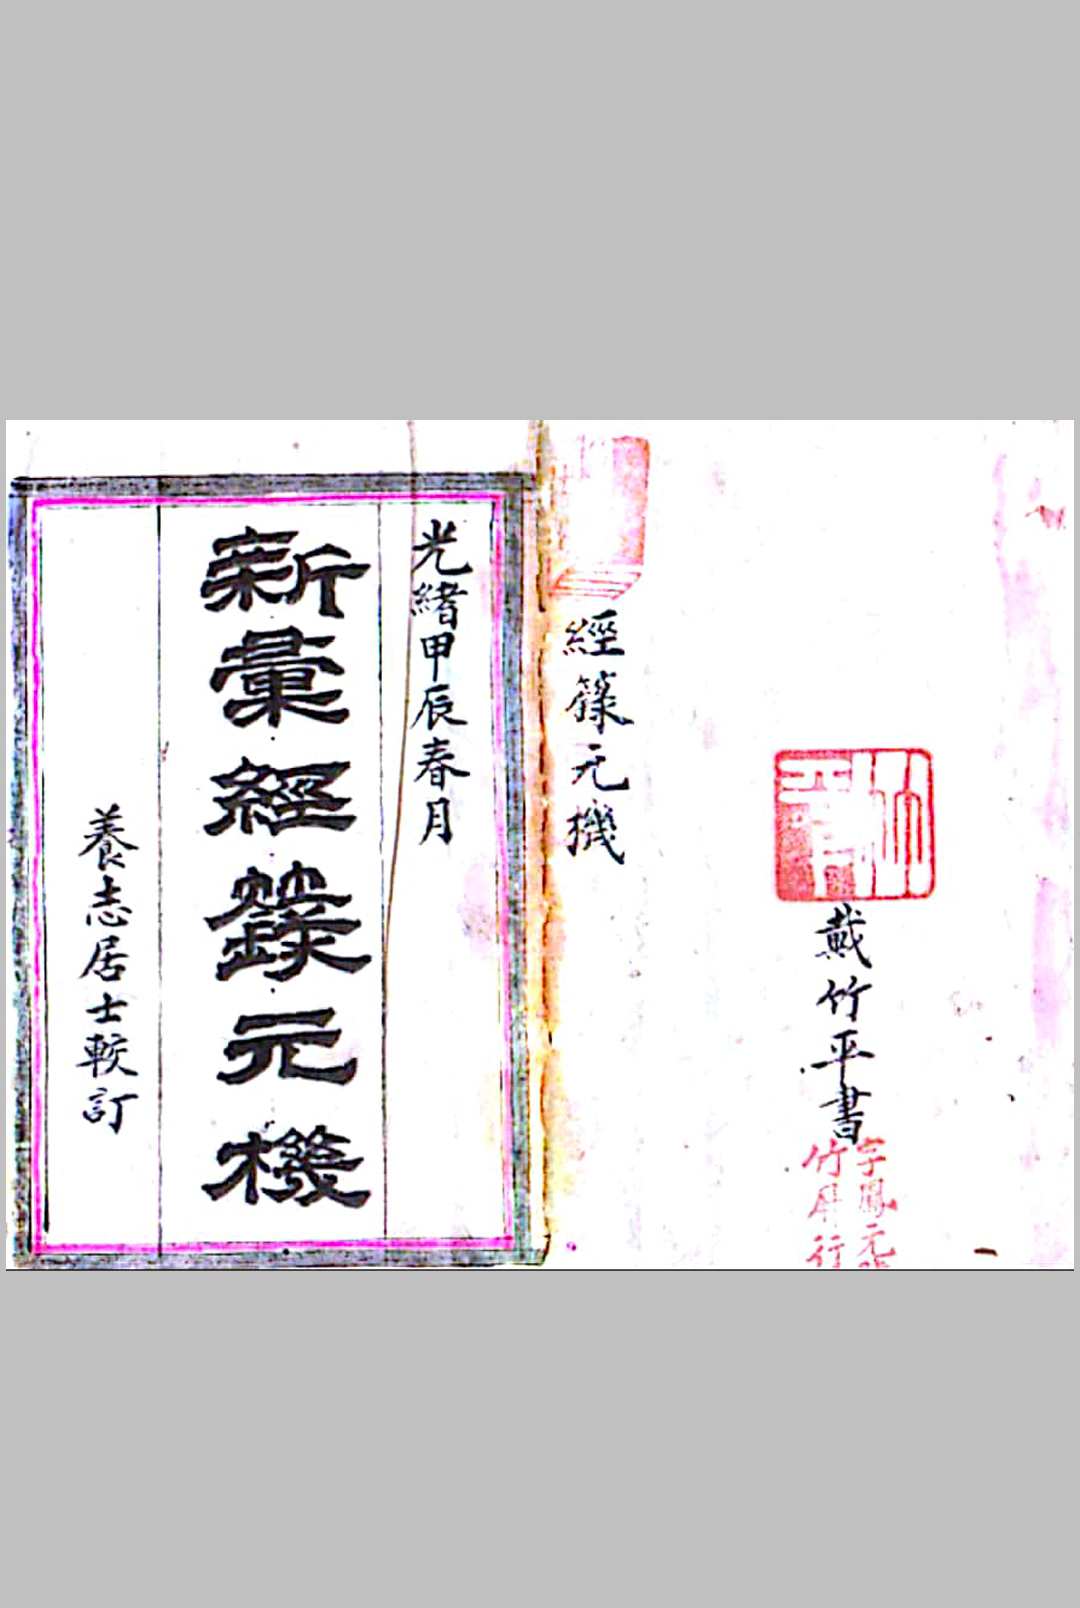 戴竹平書
字鳳元
竹屏行
經籙元機
光緒甲辰春月
新彙經籙元機
養志居士較訂